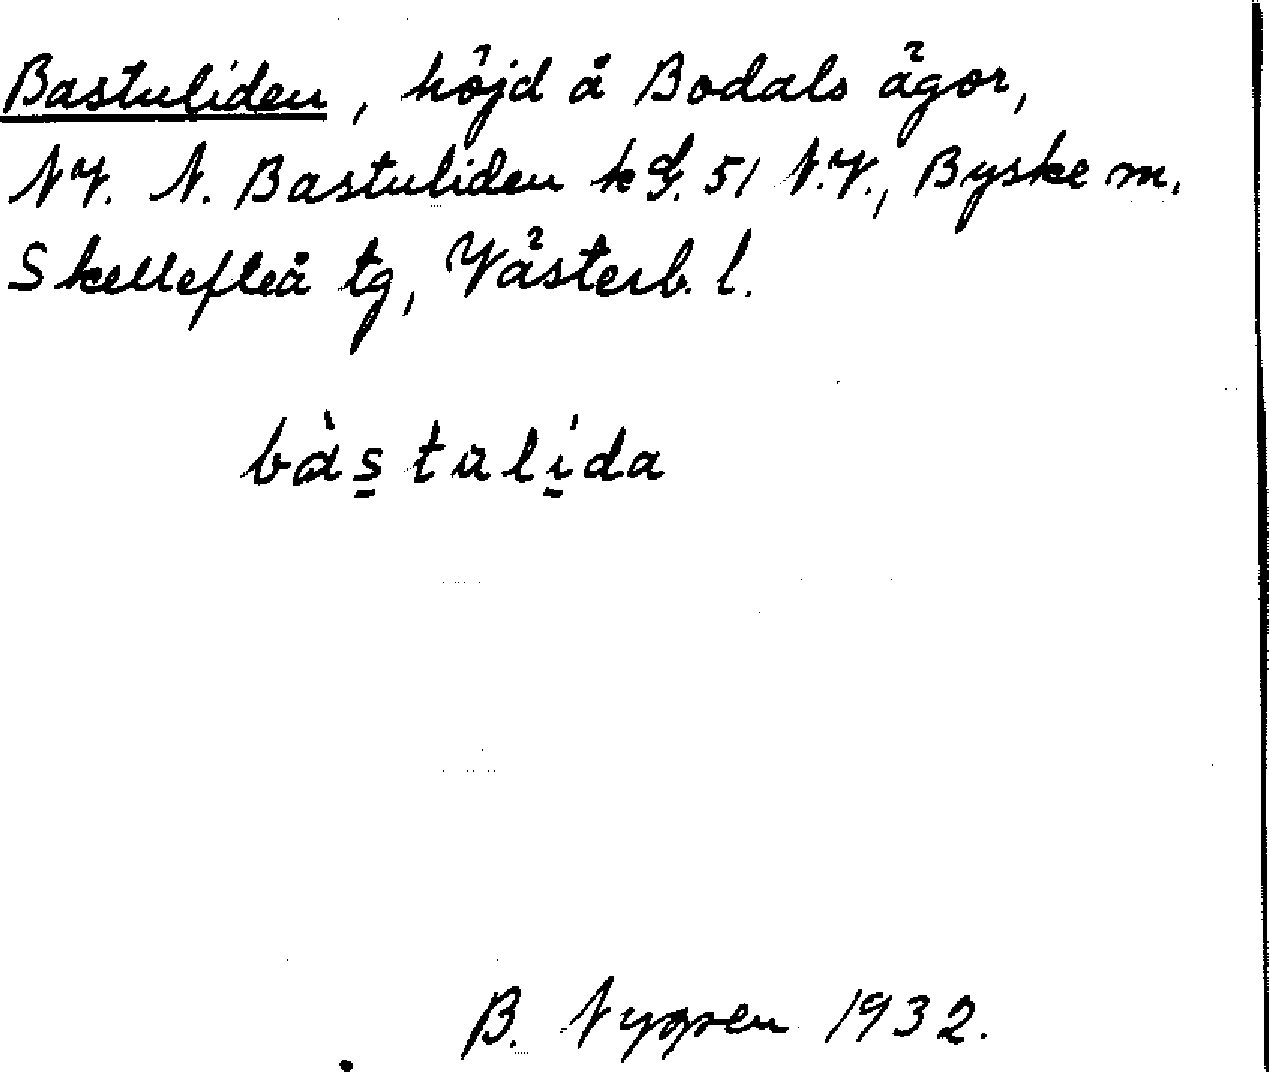 Bastuliden, höjd å Bodals ägor,
NV. N. Bastuliden k G. 51 N.V., Byske m.
Skellefteå tg, Västerb. l.
bàs̱tulí̱da
B. Nygren 1932.